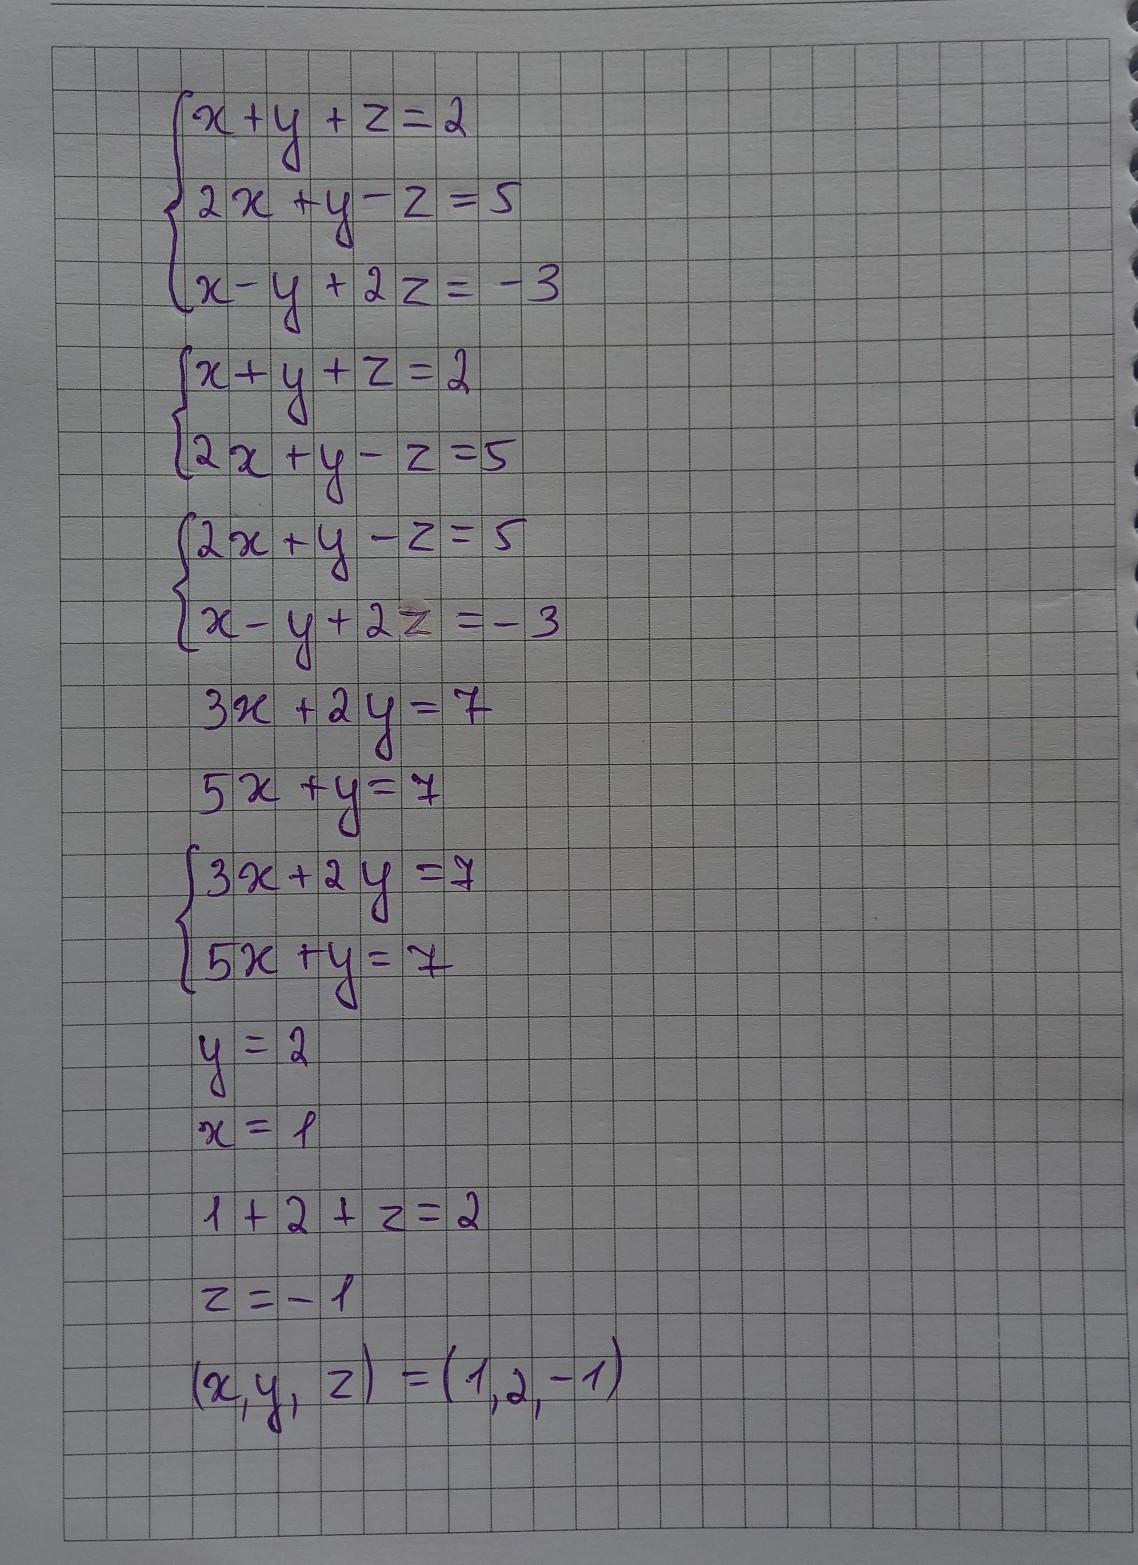 x+y+z=2
2x+y-z=5
x-y+2z=-3
x+y+z=2
2x+y-z=5
2x+y-z=5
x-y+2z=-3
3x+2y=7
5x+y=7
3x+2y=7
5x+y=7
y=2
x=1
1+2+z=2
z=-1
(x,y,z)=(1,2,-1)